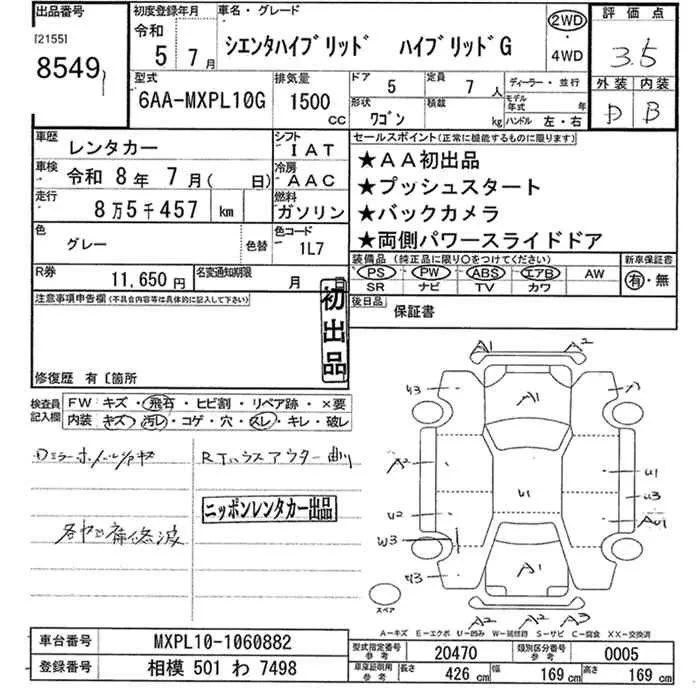 出品番号
[2155]
8549
初度登録年月
令和
5年 7月
車名・グレード
シエンタハイブリッド ハイブリッドG
2WD
・
4WD
評価点
3.5
外装 内装
D B
型式
6AA-MXPL10G
排気量
1500
CC
ドア
5
定員
7人
形状
ワゴン
積載
kg
ディーラー・並行
モデル年式 年
ハンドル 左・右
車歴
レンタカー
シフト
IAT
車検
令和 8年 7月( 日)
冷房
AAC
走行
8万5千457 km
燃料
ガソリン
色
グレー
色替
色コード
1L7
R券
11,650円
名変通知期限
月 日
セールスポイント(正常に機能するものに限ります)
★AA初出品
★プッシュスタート
★バックカメラ
★両側パワースライドドア
装備品(純正品に限り○をつけてください)
PS PW ABS エアB AW
SR ナビ TV カワ
新車保証書
有・無
後日品
保証書
注意事項申告欄(不具合内容等は具体的に記入して下さい)
初出品
修復歴 有〔箇所
検査員記入欄
FW キズ・飛石・ヒビ割・リペア跡・×要
内装 キズ・汚レ・コゲ・穴・スレ・キレ・破レ
ニッポンレンタカー出品
A1 A2
A1
U3
A2
U1
U1
U3
U2
AU1
W3
U3
A1
A2 A2 A3
スペア
A-キズ E-エクボ U-凹み W-補修跡 S-サビ C-腐食 XX-交換済
車台番号
MXPL10-1060882
登録番号
相模 501 わ 7498
型式指定番号
参考
20470
類別区分番号
参考
0005
車庫証明用
参考
長さ
426 cm
幅
169 cm
高さ
169 cm